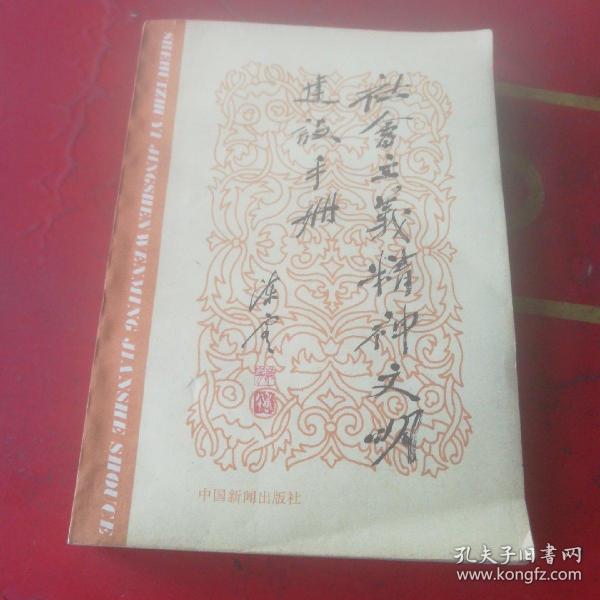 社會主義精神文明
建设手册
陈云
中国新闻出版社
SHEHUIZHUYI JINGSHENWENMING JIANSHE SHOUCE
孔夫子旧书网
www.kongfz.com